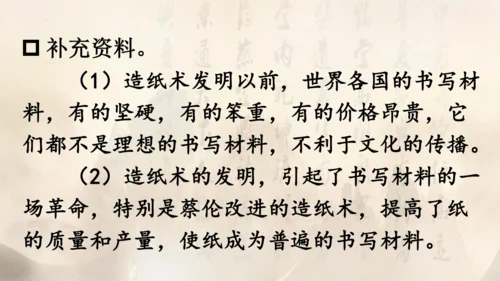 补充资料。
（1）造纸术发明以前，世界各国的书写材
料，有的坚硬，有的笨重，有的价格昂贵，它
们都不是理想的书写材料，不利于文化的传播。
（2）造纸术的发明，引起了书写材料的一
场革命，特别是蔡伦改进的造纸术，提高了纸
的质量和产量，使纸成为普遍的书写材料。